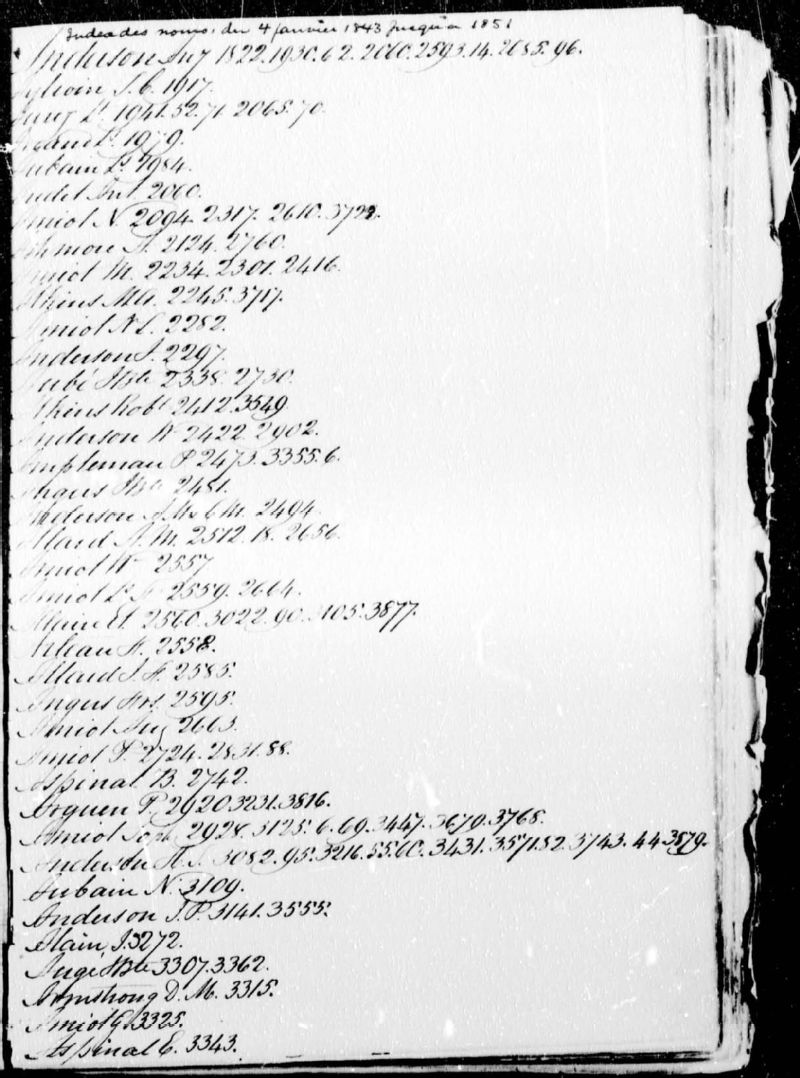 Index des noms, du 4 janvier 1843 jusqu'a 1851
Anderson Ant 1822. 1930. 62. 2060. 2593. 14. 2685. 96.
J. C. 1917.
Lt 1941. 52. 71. 2065. 70.
1979.
Aubain Ls 1984.
Ant. 2060.
Amiot N 2094. 2317. 2610. 3722.
A. 2124. 2760.
Amiot M. 2234. 2301. 2416.
Atkins 2245. 3717.
Amiot N L. 2282.
Anderson J. 2297.
Aubé Jbte 2338. 2730.
Atkins Robt 2412. 3549.
Anderson W 2422. 2902.
Ampleman P 2473. 3355. 6.
2481.
Anderson 2494.
Allard J. M. 2512. 18. 2656.
Amiot W 2557
Amiot 2559. 2664.
Alain Et. 2560. 3022. 90. 3105. 3877.
2558.
Allard J. F. 2585.
Angers 2595.
Amiot Aug 2663.
Amiot P. 2724. 2831. 88.
Aspinal B. 2742.
Arguen P. 2920. 3231. 3816.
Amiot Jos 2928. 3125. 6. 69. 3447. 3679. 3768.
Anderson A. J. 3082. 95. 3216. 55. 60. 3431. 3571. 82. 3743. 44. 3879.
Aubain N. 3109.
Anderson J. P. 3141. 3555.
Alain J. 3272.
Augé Jbte 3307. 3362.
Armstrong D. M. 3315.
Amiot G. 3325.
Aspinal E. 3343.